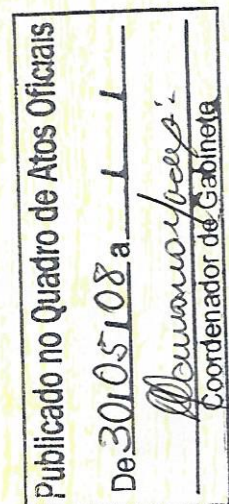 Publicado no Quadro de Atos Oficiais
De 30/05/08 a / /
Coordenador de Gabinete